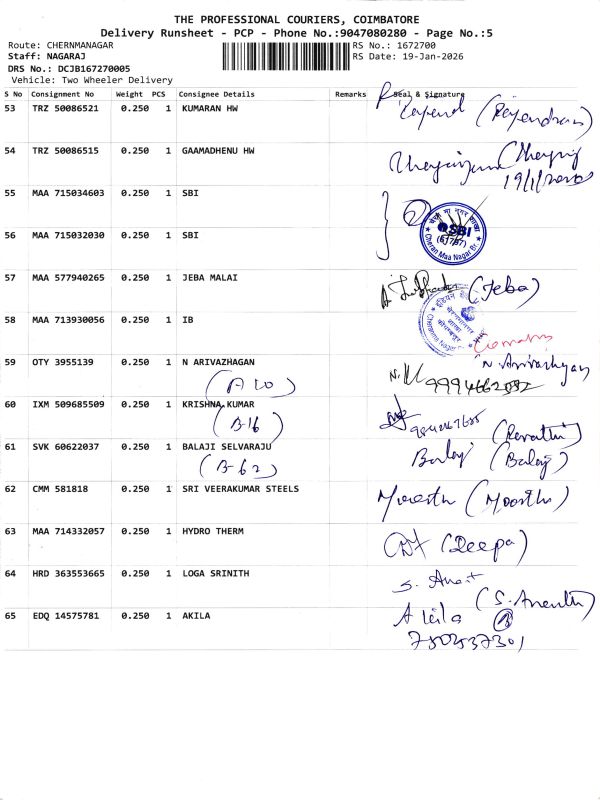 THE PROFESSIONAL COURIERS, COIMBATORE
Delivery Runsheet - PCP - Phone No.:9047080280 - Page No.:5
Route: CHERNMANAGAR
RS No.: 1672700
Staff: NAGARAJ
RS Date: 19-Jan-2026
DRS No.: DCJB167270005
Vehicle: Two Wheeler Delivery
S No Consignment No Weight PCS Consignee Details Remarks Seal & Signature
53 TRZ 50086521 0.250 1 KUMARAN HW (Rajendran)
54 TRZ 50086515 0.250 1 GAAMADHENU HW
55 MAA 715034603 0.250 1 SBI
SBI
(61787)
Cheran Maa Nagar Br.
56 MAA 715032030 0.250 1 SBI
57 MAA 577940265 1 JEBA MALAI (Jeba)
58 MAA 713930056 0.250 1 IB
59 OTY 3955139 0.250 1 N ARIVAZHAGAN
(A 10)
60 IXM 509685509 0.250 1 KRISHNA KUMAR
(B-16)
(Revathi)
61 SVK 60622037 0.250 1 BALAJI SELVARAJU Balaji (Balaji)
(B-62)
62 CMM 581818 0.250 1 SRI VEERAKUMAR STEELS (Moorthi)
63 MAA 714332057 0.250 1 HYDRO THERM (Deepa)
64 HRD 363553665 0.250 1 LOGA SRINITH
(S. Ananth)
65 EDQ 14575781 0.250 1 AKILA Akila